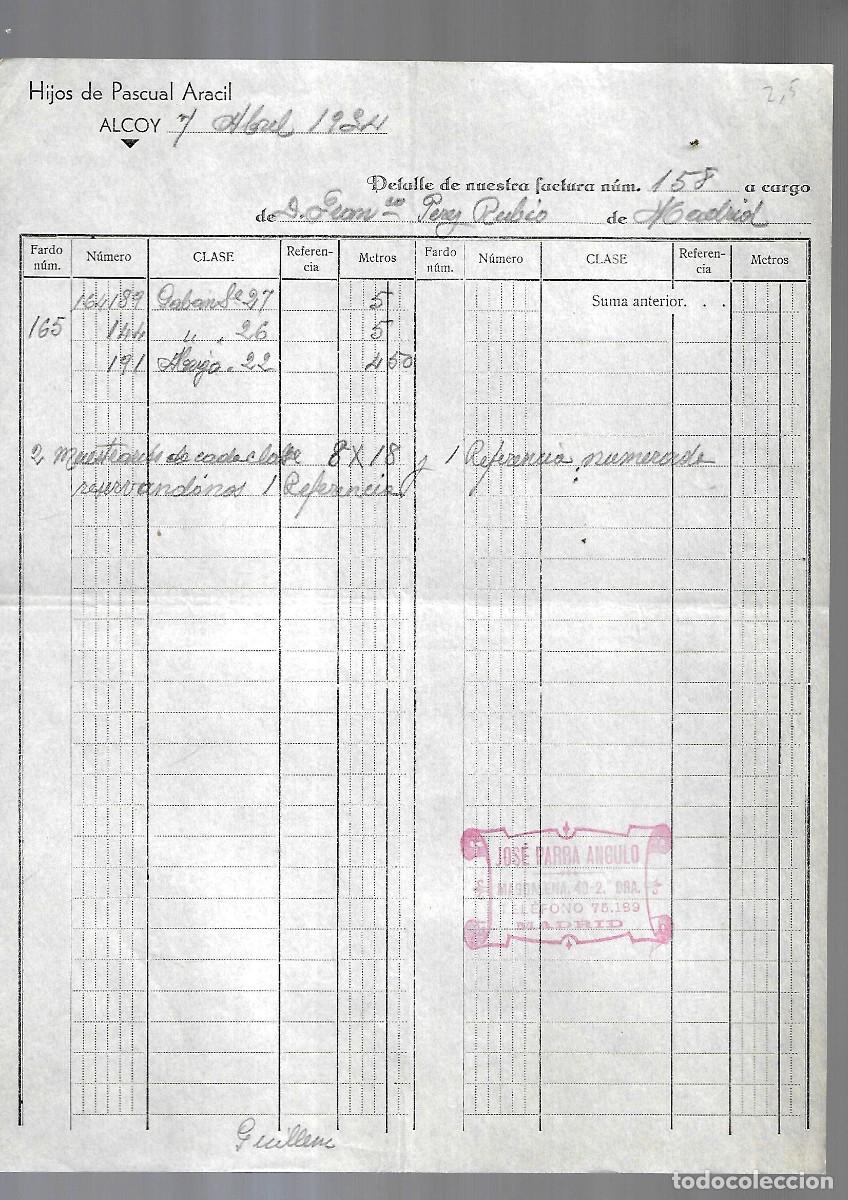 2,5
Hijos de Pascual Aracil
ALCOY 7 Abril 1934
Detalle de nuestra factura núm. 158 a cargo
de D. Fran co Perez Rubio de Madrid
Fardo núm. Número CLASE Referen-cia Metros Fardo núm. Número CLASE Referen-cia Metros
164189 Gaban Se 27 5 Suma anterior. . .
165 144 " " 26 5
191 22 4 50
2 de cada clase 8 X 18 y 1 Referencia numerada
reservandonos 1 Referencia
JOSÉ PARRA ANGULO
MAGDALENA, 40-2.º DRA.
TELEFONO 75.189
MADRID
Guillem
todocoleccion